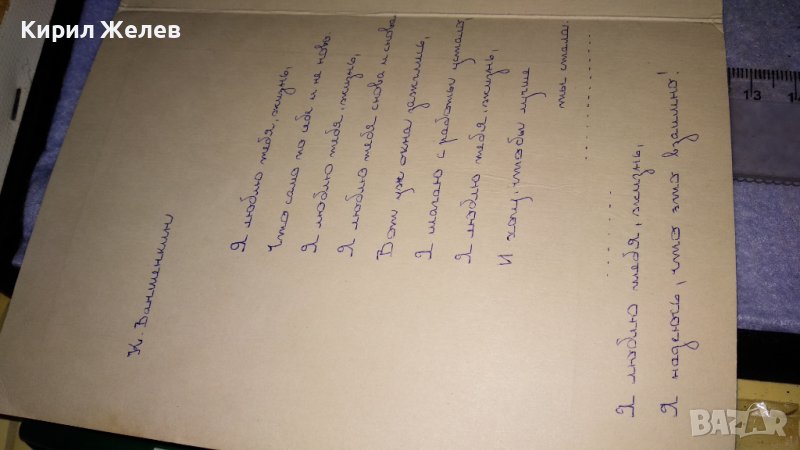 Кирил Желев
К. Ваншенкин
Я люблю тебя, жизнь,
Что само по себе и не ново
Я люблю тебя, жизнь,
Я люблю тебя снова и снова
Вот уж окна зажглись,
Я шагаю с работы устало,
Я люблю тебя, жизнь,
И хочу, чтобы лучше
ты стала.
Я люблю тебя, жизнь,
Я надеюсь, что это взаимно!
13
1
BAZAR